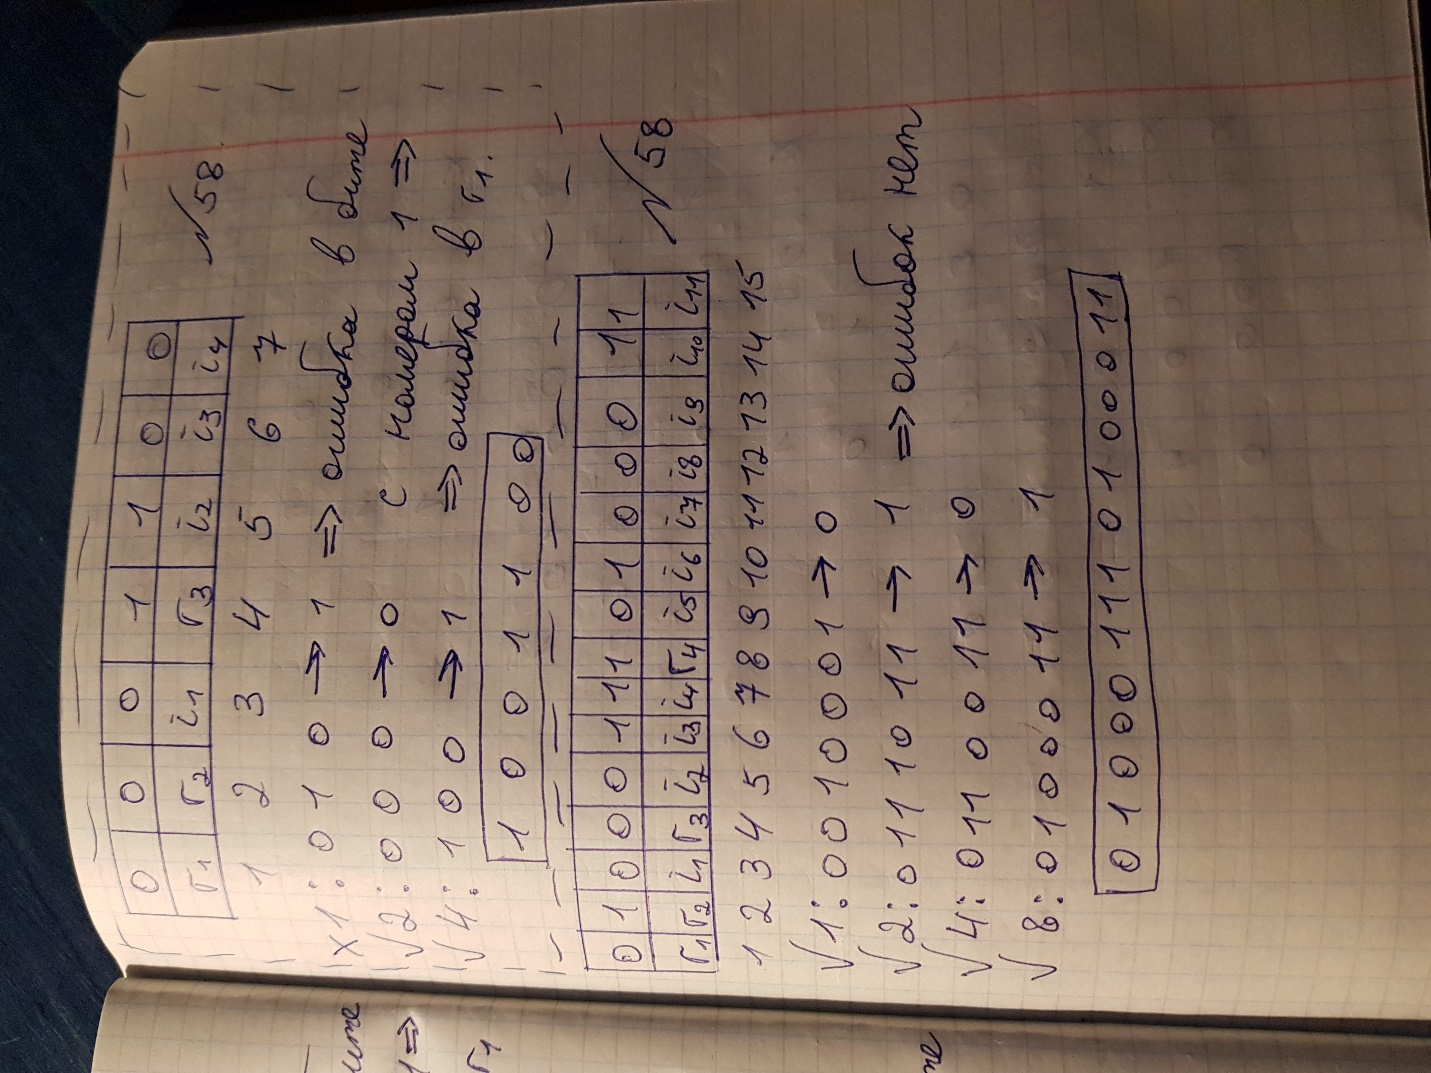 0 0 0 1 1 0 0
r1 r2 i1 r3 i2 i3 i4
1 2 3 4 5 6 7
№58.
×1: 0 1 0 → 1 => ошибка в бите
√2: 0 0 0 → 0 с номером 1 =>
√4: 1 0 0 → 1 => ошибка в r1.
1 0 0 1 1 0 0
0 1 0 0 0 1 1 1 0 1 0 0 0 1 1
r1 r2 i1 r3 i2 i3 i4 r4 i5 i6 i7 i8 i9 i10 i11
№58
1 2 3 4 5 6 7 8 9 10 11 12 13 14 15
√1: 0 0 1 0 0 0 1 → 0
√2: 0 1 1 1 0 1 1 → 1 => ошибок нет
√4: 0 1 1 0 0 1 1 → 0
√8: 0 1 0 0 0 1 1 → 1
0 1 0 0 0 1 1 1 0 1 0 0 0 1 1
бите
1 =>
r1